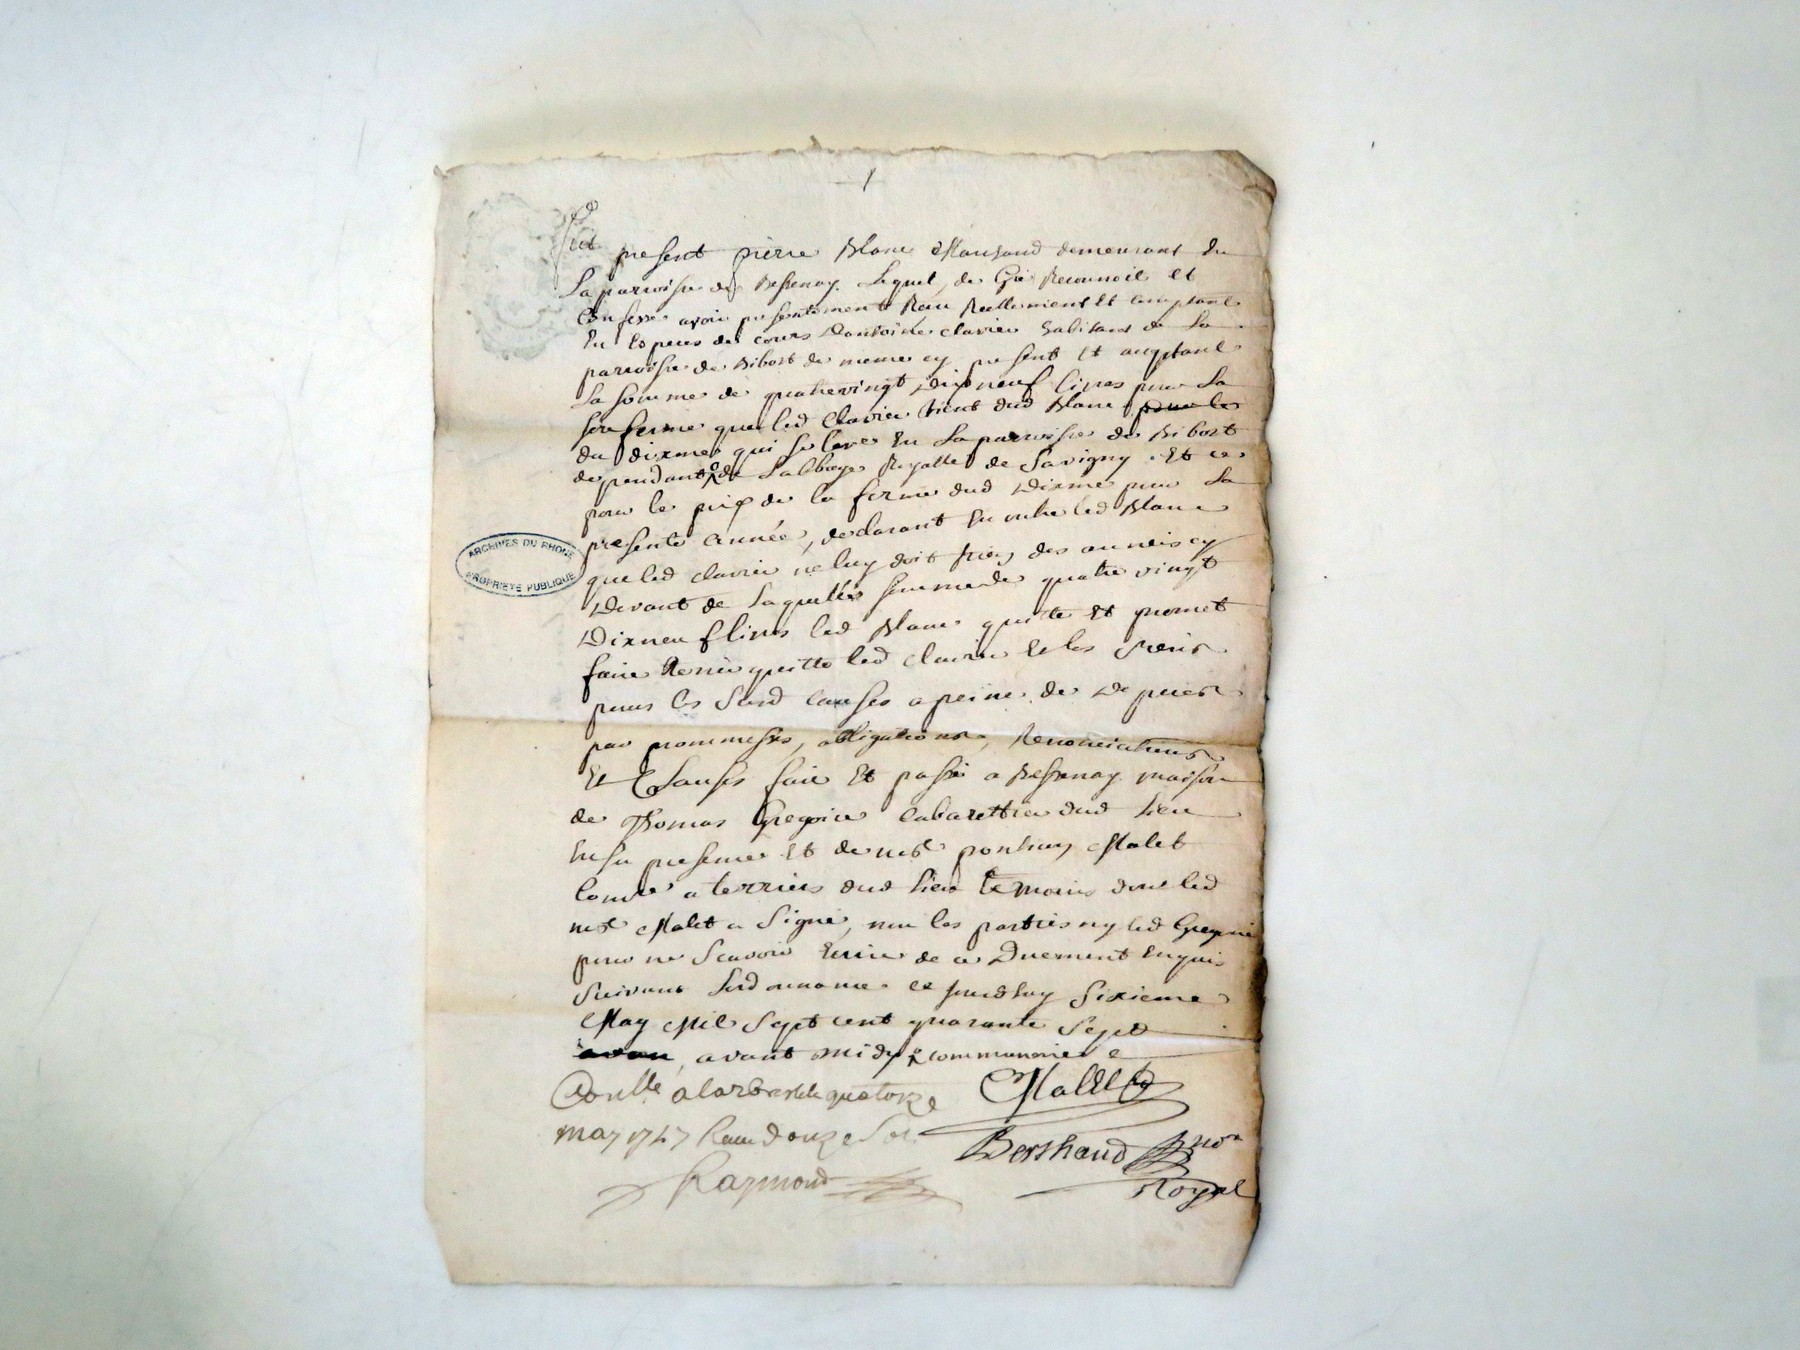 fut present pierre Blanc Marchand demeurant En
La paroisse de Bessenay Lequel de Gré Reconnoit et
Confesse avoir presentement Receu Reellement Et comptant
En Especes de cours Dantoine clavier habitant de La
paroisse de Bibost de meme cy present Et acceptant
La somme de quatrevingt Dix neuf livres pour La
sou ferme que led Clavier tient dud Blanc
du dixme qui se leve En La paroisse de Bibost
dependant de Labbaye Royalle de Savigny . Et ce
pour le prix de la ferme dud Dixme pour La
presente année, declarant En outre led Blanc
que led clavier ne luy doit rien des années cy
Devant de Laquelle somme de quatre vingt
Dixneuf livres led Blanc quitte Et promet
faire tenir quitte led clavier Et les siens
pour les Susd causes a peine de Depens
par prommesses, obligations, Renonciations
Et Clauses fait Et passé a Bessenay maison
de Thomas Gregoire Cabarettier dud Lieu
En sa presence Et de mre ponthus Malet
Comre a terriers dud Lieu temoins dont led
mre Malet a Signé, non les parties ny led Gregoire
pour ne Scavoir Ecrire de ce Duement Enquis
Suivant Lordonnance ce Sixieme
May Mil Sept cent quarante Sept
avant midy
ARCHIVES DU RHONE
PROPRIETE PUBLIQUE
Conllé a larbresle le quatorze
may 1747 Receu douze sols
Raymond
Mallet
Berthaud nore
Royal